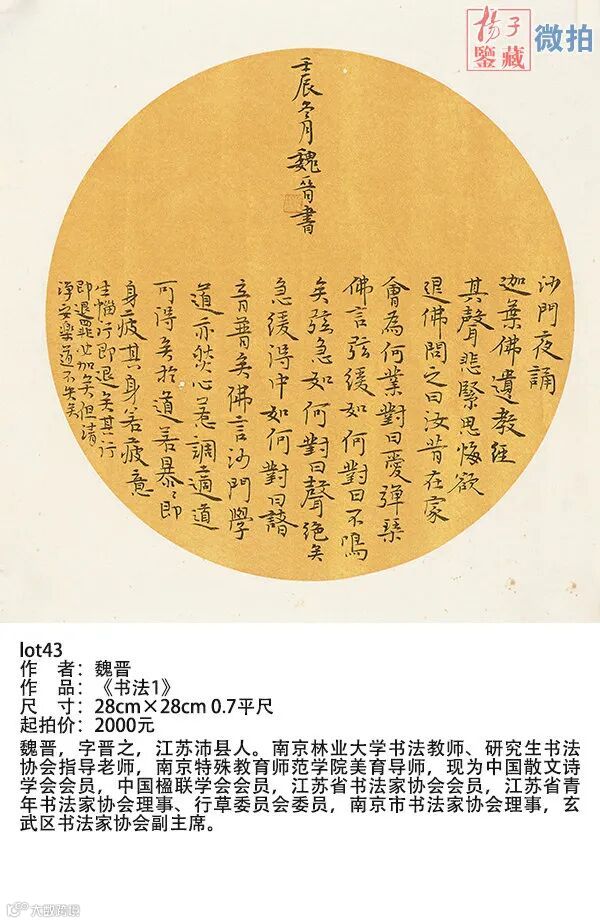 揚子
鑒藏
微拍
壬辰冬月魏晋書
沙門夜誦
迦葉佛遺教經
其聲悲緊思悔欲
退佛問之曰汝昔在家
會為何業對曰愛彈琴
佛言弦緩如何對曰不鳴
矣弦急如何對曰聲絕矣
急緩得中如何對曰諸
音普矣佛言沙門學
道亦然心若調適道
可得矣於道若暴暴即
身疲其身若疲意
生惱行即退矣其行
即退罪必加矣但清
淨安樂道不失矣
lot43
作 者：魏晋
作 品：《书法1》
尺 寸：28cm×28cm 0.7平尺
起拍价：2000元
魏晋，字晋之，江苏沛县人。南京林业大学书法教师、研究生书法
协会指导老师，南京特殊教育师范学院美育导师，现为中国散文诗
学会会员，中国楹联学会会员，江苏省书法家协会会员，江苏省青
年书法家协会理事、行草委员会委员，南京市书法家协会理事，玄
武区书法家协会副主席。
大数跨境